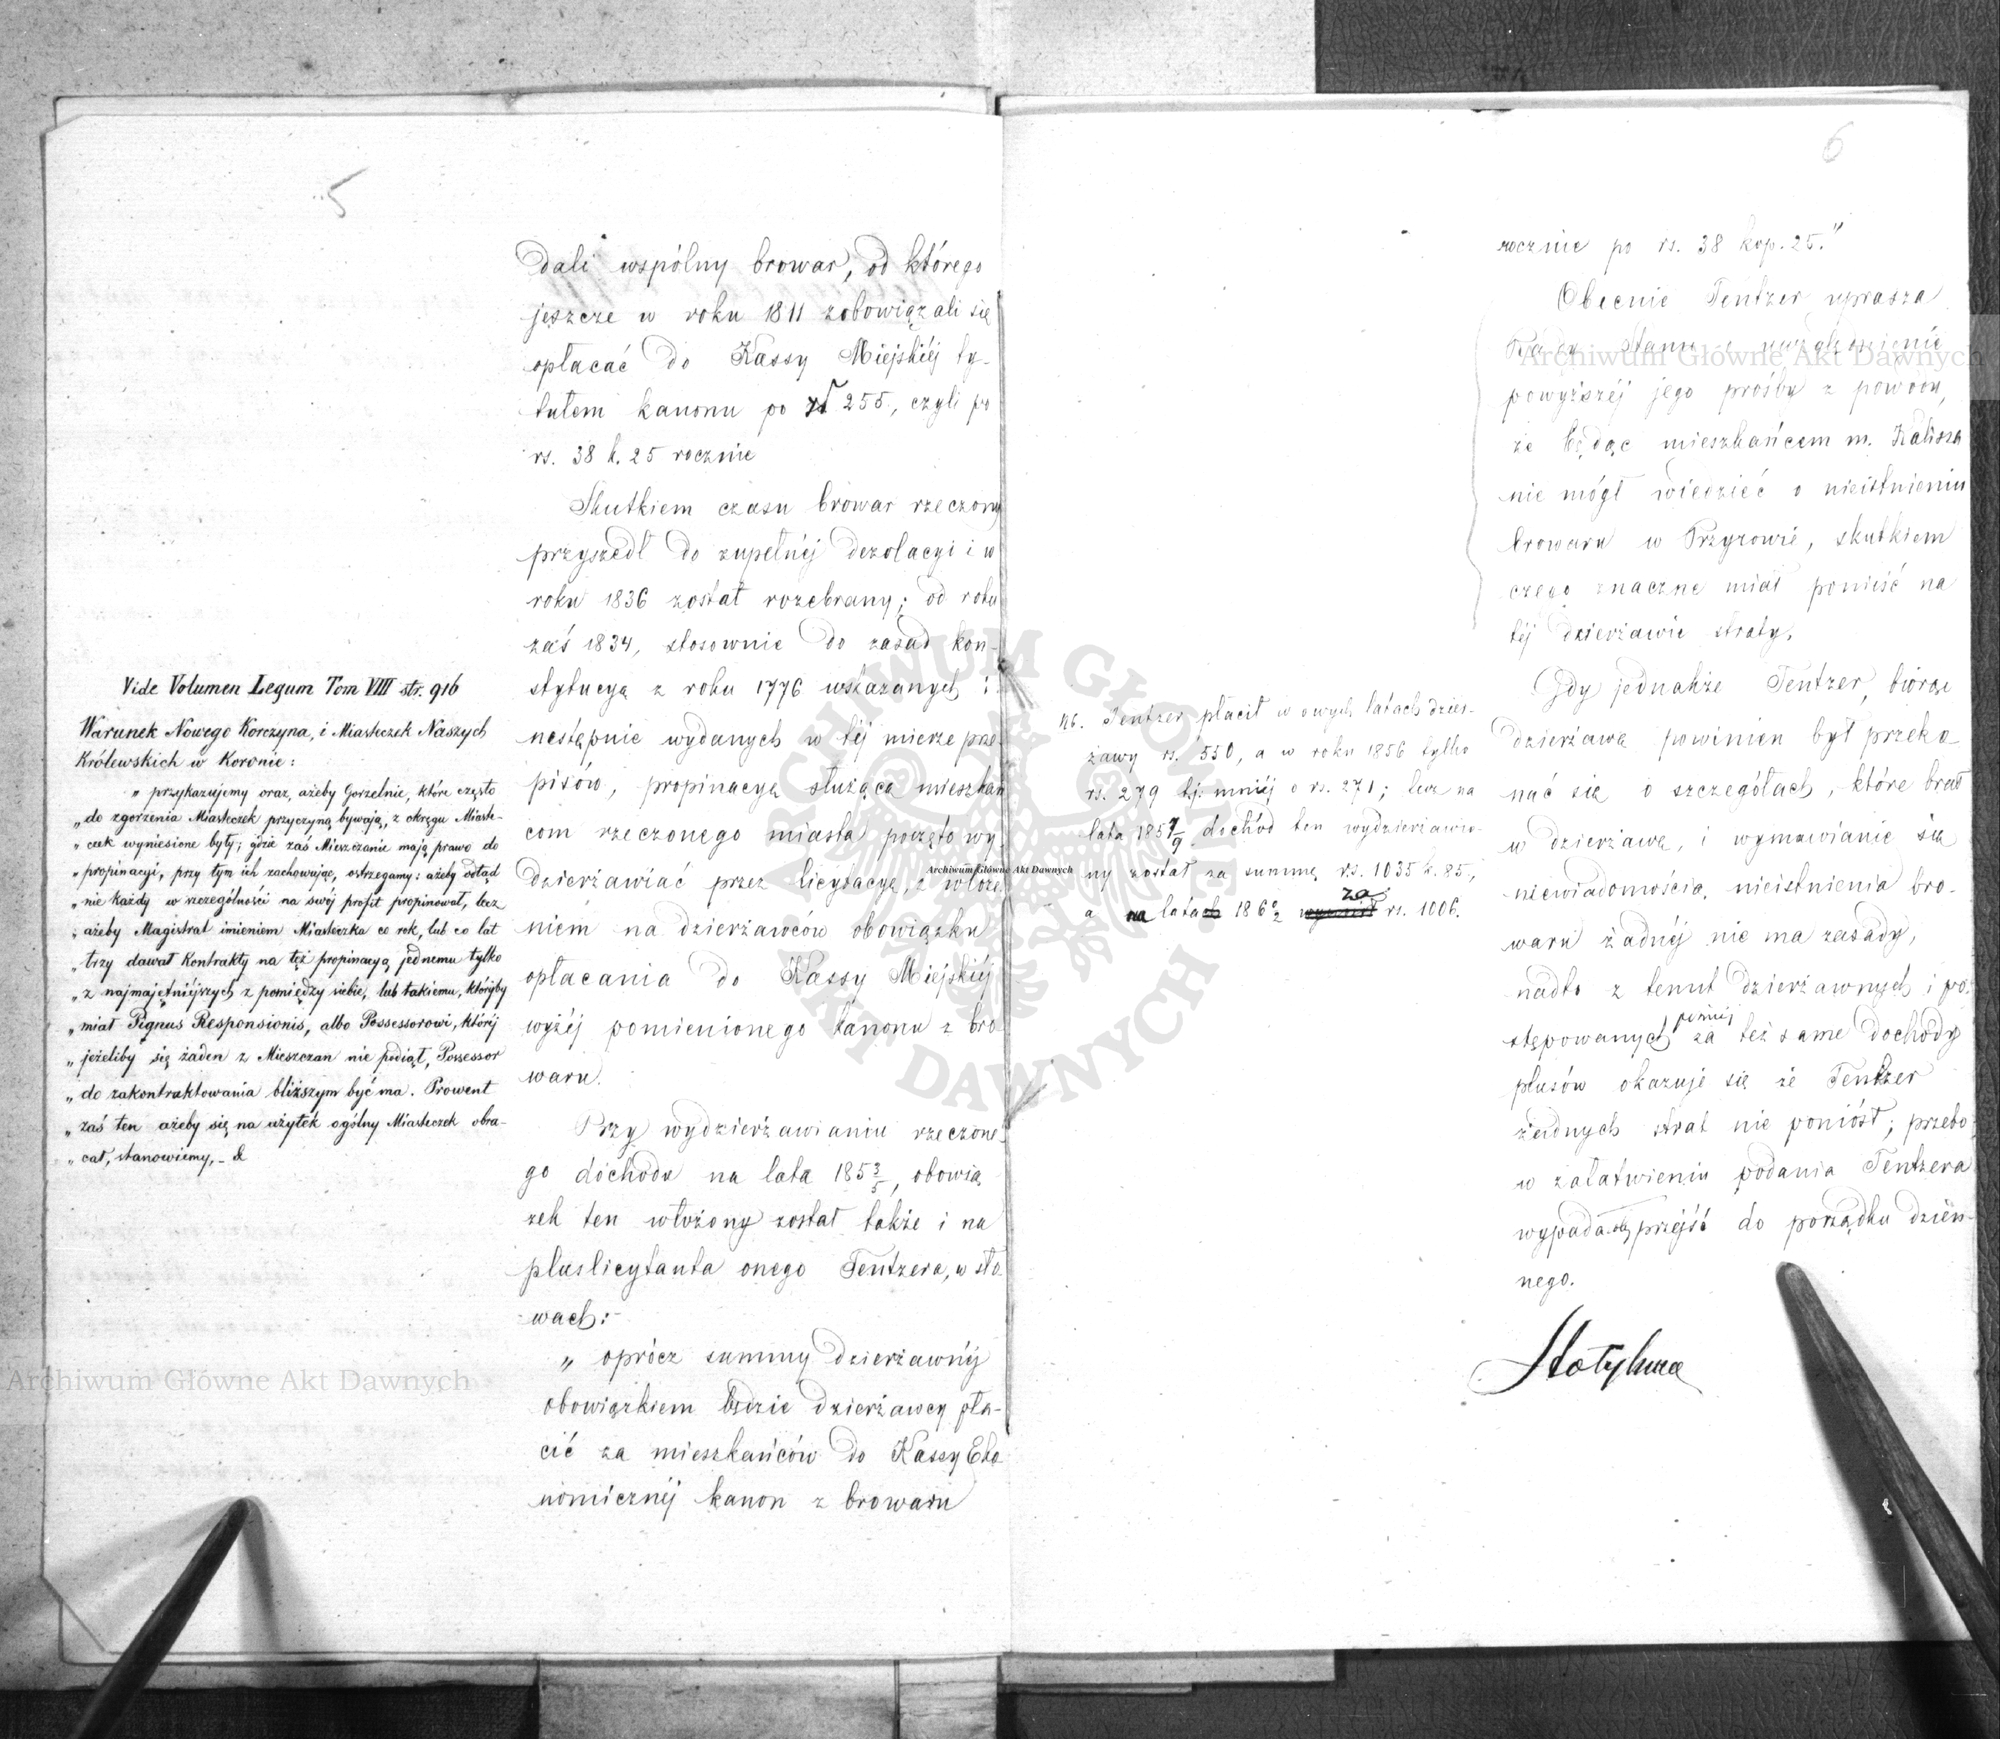 5
dali wspólny browar, od którego
jeszcze w roku 1811 zobowiązali się
opłacać do Kassy Miejskiéj ty-
tułem kanonu po zł 255, czyli po
rs. 38 k. 25 rocznie
Skutkiem czasu browar rzeczony
przyszedł do zupełnéj dezolacyi i w
roku 1836 został rozebrany; od roku
zaś 1834, stosownie do zasad kon-
stytucyą z roku 1776 wskazanych i
następnie wydanych w téj mierze prze-
pisów, propinacya służąca mieszkań
com rzeczonego miasta poczęto wy-
dzierżawiać przez licytacyę, z włoże
niem na dzierżawców obowiązku
opłacania do Kassy Miejskiéj
wyżéj pomienionego kanonu z bro
waru.
Przy wydzierżawianiu rzeczone-
go dochodu na lata 185 3/5, obowią
zek ten włożony został także i na
pluslicytanta onego Tentzera, w sło
wach:
„ oprócz summy dzierżawnéj
obowiązkiem będzie dzierżawcy pła-
cić za mieszkańców do Kassy Eko
nomicznéj kanon z browaru
Vide Volumen Legum Tom VIII str. 916
Warunek Nowego Korczyna, i Miasteczek Naszych
Królewskich w Koronie:
„ przykazujemy oraz, ażeby Gorzelnie, które często
„ do zgorzenia Miasteczek przyczyną bywają, z okręgu Miaste-
„ czek wyniesione były; gdzie zaś Mieszczanie mają prawo do
„ propinacyi, przy tym ich zachowując, ostrzegamy: ażeby odtąd
„ nie każdy w szczególności na swój profit propinował, lecz
„ ażeby Magistrat imieniem Miasteczka co rok, lub co lat
„ trzy dawał Kontrakty na tęż propinacyą jednemu tylko
„ z najmajętniéjszych z pomiędzy siebie, lub takiemu, któryby
„ miał Pignus Responsionis, albo Possessorowi, któréj
„ jeżeliby się żaden z Mieszczan nie podiął, Possessor
„ do zakontraktowania bliższym być ma. Prowent
„ zaś ten ażeby się na użytek ogólny Miasteczek obra-
„ cał, stanowiemy, _ &
6
rocznie po rs. 38 kop. 25."
Obecnie Tentzer uprasza
Rady Stanu o uwzględnienie
powyższéj jego prośby z powodu,
że będąc mieszkańcem m. Kalisza
nie mógł wiedzieć o nieistnieniu
browaru w Przyrowie, skutkiem
czego znaczne miał ponieść na
téj dzierżawie straty.
Gdy jednakże Tentzer, biorąc
dzierżawę powinien był przeko-
nać się o szczegółach, które brał
w dzierżawę, i wymawianie się
niewiadomością, nieistnienia bro-
waru żadnéj nie ma zasady,
nadto z tenut dzierżawnych i po-
stępowanych późniéj za też same dochody
plusów okazuje się że Tentzer
żadnych strat nie poniósł; przeto
w załatwieniu podania Tentzera
wypada przejść do porządku dzien-
nego.
NB. Tentzer płacił w owych latach dzier-
żawy rs. 550, a w roku 1856 tylko
rs. 279 tj. mniéj o rs. 271; lecz na
lata 185 7/9 dochód ten wydzierżawio-
ny został za summę rs. 1035 k. 85,
a na lata 186 0/2 za rs. 1006.
Archiwum Główne Akt Dawnych
Archiwum Główne Akt Dawnych
Archiwum Główne Akt Dawnych
ARCHIWUM GŁÓWNE AKT DAWNYCH